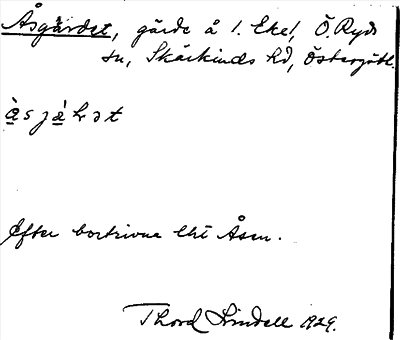 Åsgärdet, gärde å 1. Eke1, Ö. Ryds
sn, Skärkinds hd, Östergötl.
à s j ǽ l ə t
Efter bortrivna lht Åsen.
Thord Lindell 1929.